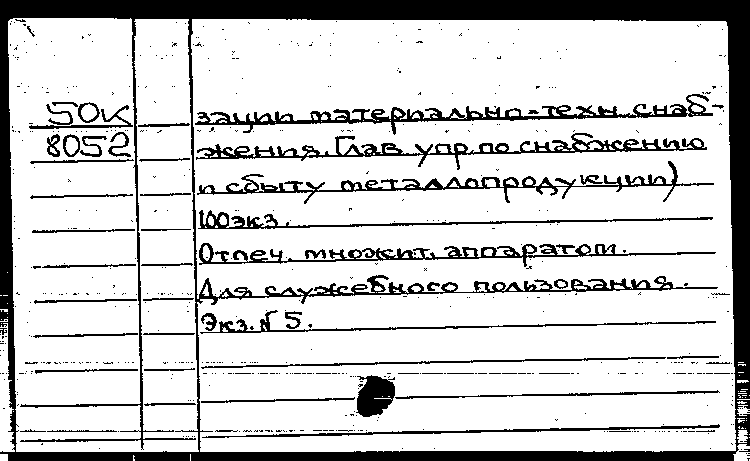 50к
8052
зации материально-техн. снаб-
жения. Глав. упр. по снабжению
и сбыту металлопродукции)
100 экз.
Отпеч. множит. аппаратом.
Для служебного пользования.
Экз. № 5.